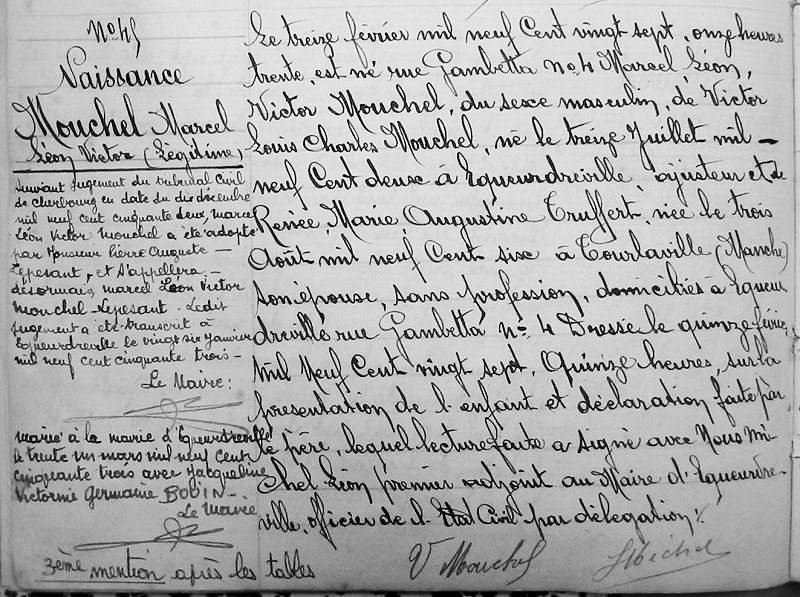 No 45
Naissance
Mouchel Marcel
Léon Victor (Légitime)
Suivant jugement du tribunal Civil
de Cherbourg en date du dix décembre
mil neuf cent cinquante deux, Marcel
Léon Victor Mouchel a été adopté
par Monsieur Pierre Auguste —
Lepesant, et s'appellera —
désormais, Marcel Léon Victor
Mouchel-Lepesant. Ledit
jugement a été transcrit à
Equeurdreville le vingt six janvier
mil neuf cent cinquante trois —
Le Maire:
Marié à la mairie d'Equeurdreville
le trente un mars mil neuf cent
cinquante trois avec Jacqueline
Victorine Germaine BOUIN —
Le Maire
3ème mention après les tables
Le treize février mil neuf Cent vingt sept, onze heures
trente, est né rue Gambetta no 4 Marcel Léon,
Victor Mouchel, du sexe masculin, de Victor
Louis Charles Mouchel, né le treize Juillet mil —
neuf Cent deux à Equeurdreville ajusteur et de
Renée, Marie, Augustine Truffert, née le trois
Août mil neuf Cent six à Tourlaville (Manche)
son épouse, sans profession, domiciliés à Equeur
dreville rue Gambetta no 4 Dressé le quinze février
Mil Neuf Cent vingt sept, Quinze heures, sur la
présentation de l'enfant et déclaration faite par
le père, lequel lecture faite a signé avec Nous Mi-
chel Léon premier adjoint au Maire d'Equeurdre-
ville, officier de l'Etat Civil par délégation ./.
V Mouchel
LMichel